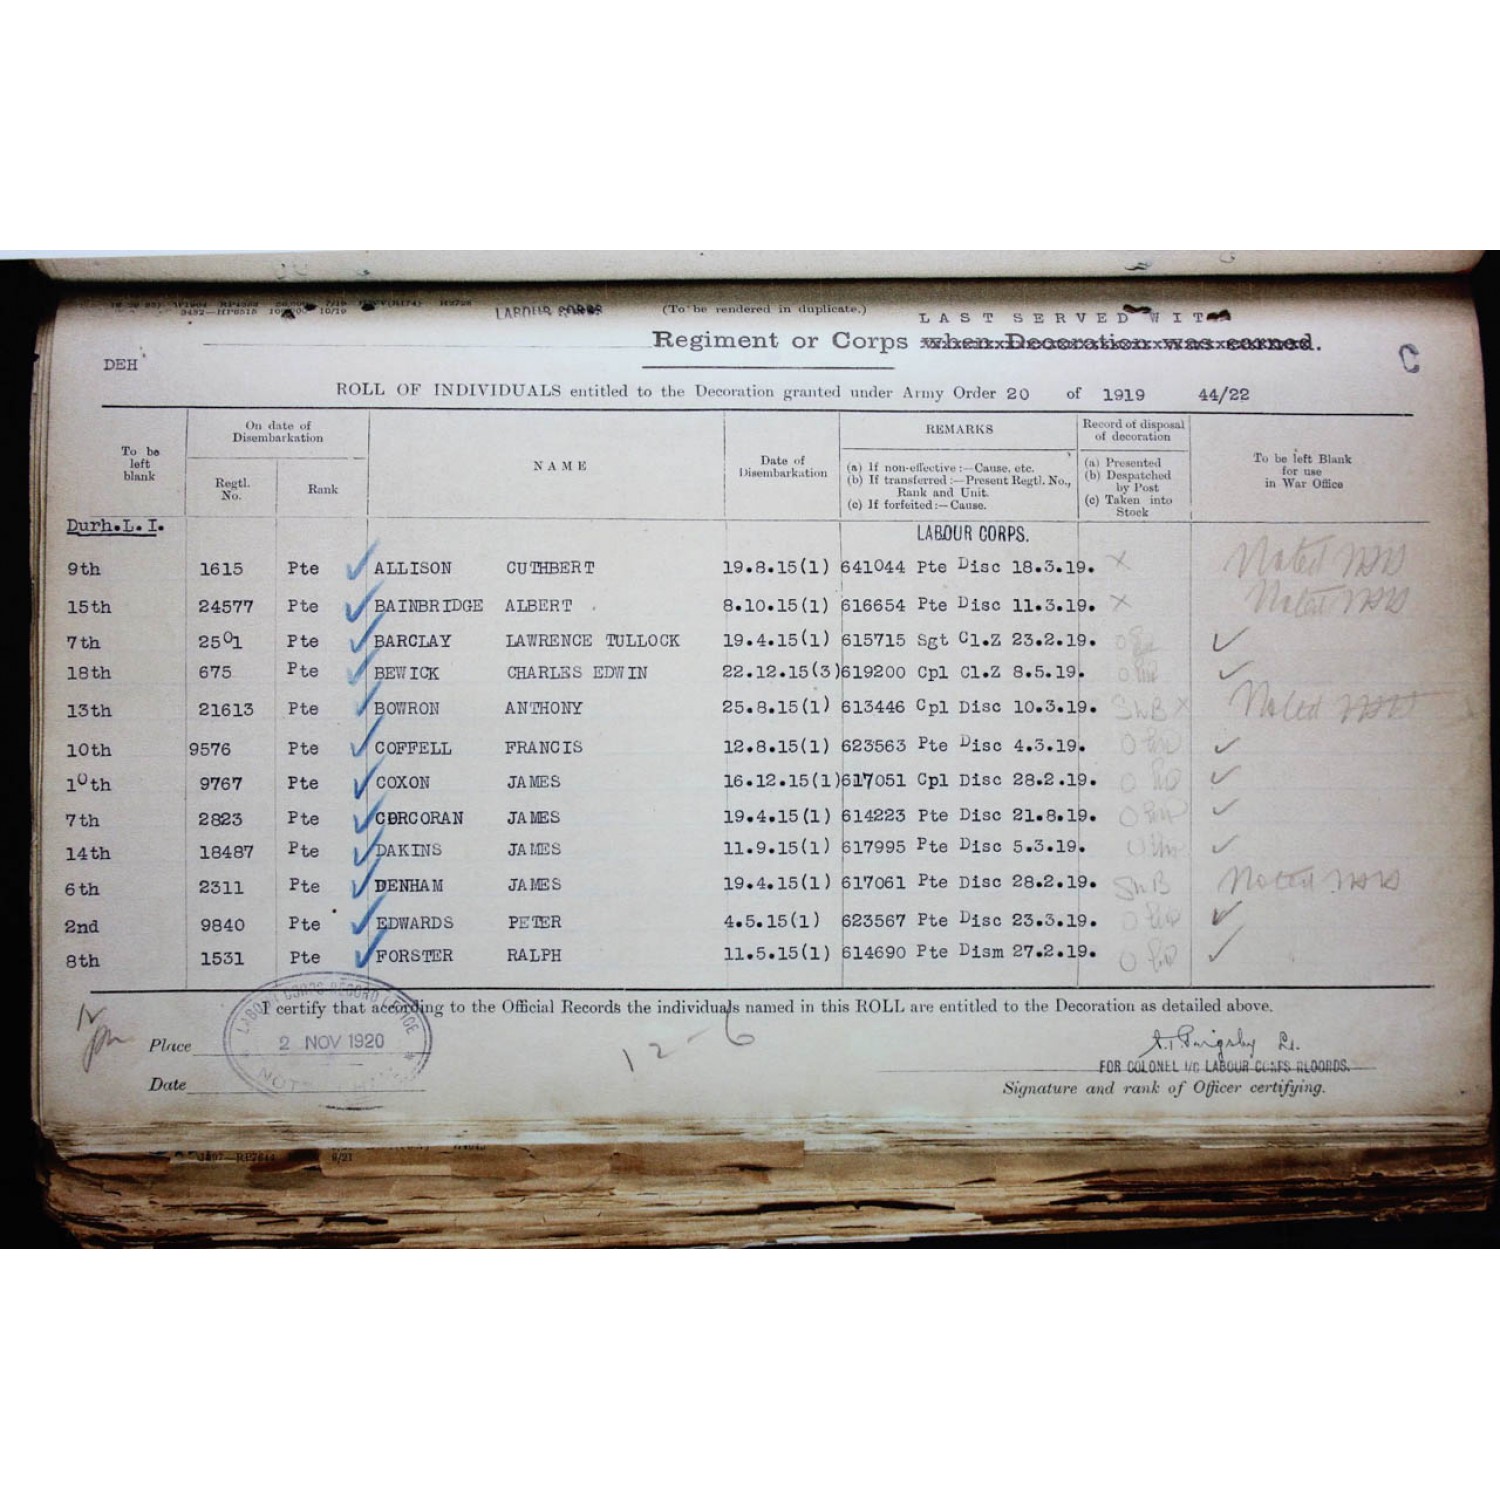 LABOUR CORPS
(To be rendered in duplicate.)
LAST SERVED WIT
Regiment or Corps when Decoration was earned.
DEH
C
ROLL OF INDIVIDUALS entitled to the Decoration granted under Army Order 20 of 1919 44/22
To be left blank
On date of Disembarkation
Regtl. No.
Rank
NAME
Date of Disembarkation
REMARKS
(a) If non-effective :—Cause, etc.
(b) If transferred :—Present Regtl. No., Rank and Unit.
(c) If forfeited :—Cause.
Record of disposal of decoration
(a) Presented
(b) Despatched by Post
(c) Taken into Stock
To be left Blank for use in War Office
Durh.L.I.
LABOUR CORPS.
9th 1615 Pte ALLISON CUTHBERT 19.8.15(1) 641044 Pte Disc 18.3.19. X Noted
15th 24577 Pte BAINBRIDGE ALBERT 8.10.15(1) 616654 Pte Disc 11.3.19. X Noted
7th 2501 Pte BARCLAY LAWRENCE TULLOCK 19.4.15(1) 615715 Sgt Cl.Z 23.2.19.
18th 675 Pte BEWICK CHARLES EDWIN 22.12.15(3) 619200 Cpl Cl.Z 8.5.19.
13th 21613 Pte BOWRON ANTHONY 25.8.15(1) 613446 Cpl Disc 10.3.19. SWB X Noted
10th 9576 Pte COFFELL FRANCIS 12.8.15(1) 623563 Pte Disc 4.3.19.
10th 9767 Pte COXON JAMES 16.12.15(1) 617051 Cpl Disc 28.2.19.
7th 2823 Pte CORCORAN JAMES 19.4.15(1) 614223 Pte Disc 21.8.19.
14th 18487 Pte DAKINS JAMES 11.9.15(1) 617995 Pte Disc 5.3.19.
6th 2311 Pte DENHAM JAMES 19.4.15(1) 617061 Pte Disc 28.2.19. SWB Noted
2nd 9840 Pte EDWARDS PETER 4.5.15(1) 623567 Pte Disc 23.3.19.
8th 1531 Pte FORSTER RALPH 11.5.15(1) 614690 Pte Dism 27.2.19.
I certify that according to the Official Records the individuals named in this ROLL are entitled to the Decoration as detailed above.
LABOUR CORPS RECORD OFFICE
2 NOV 1920
Place
12-6
FOR COLONEL I/C LABOUR CORPS RECORDS.
Date
Signature and rank of Officer certifying.